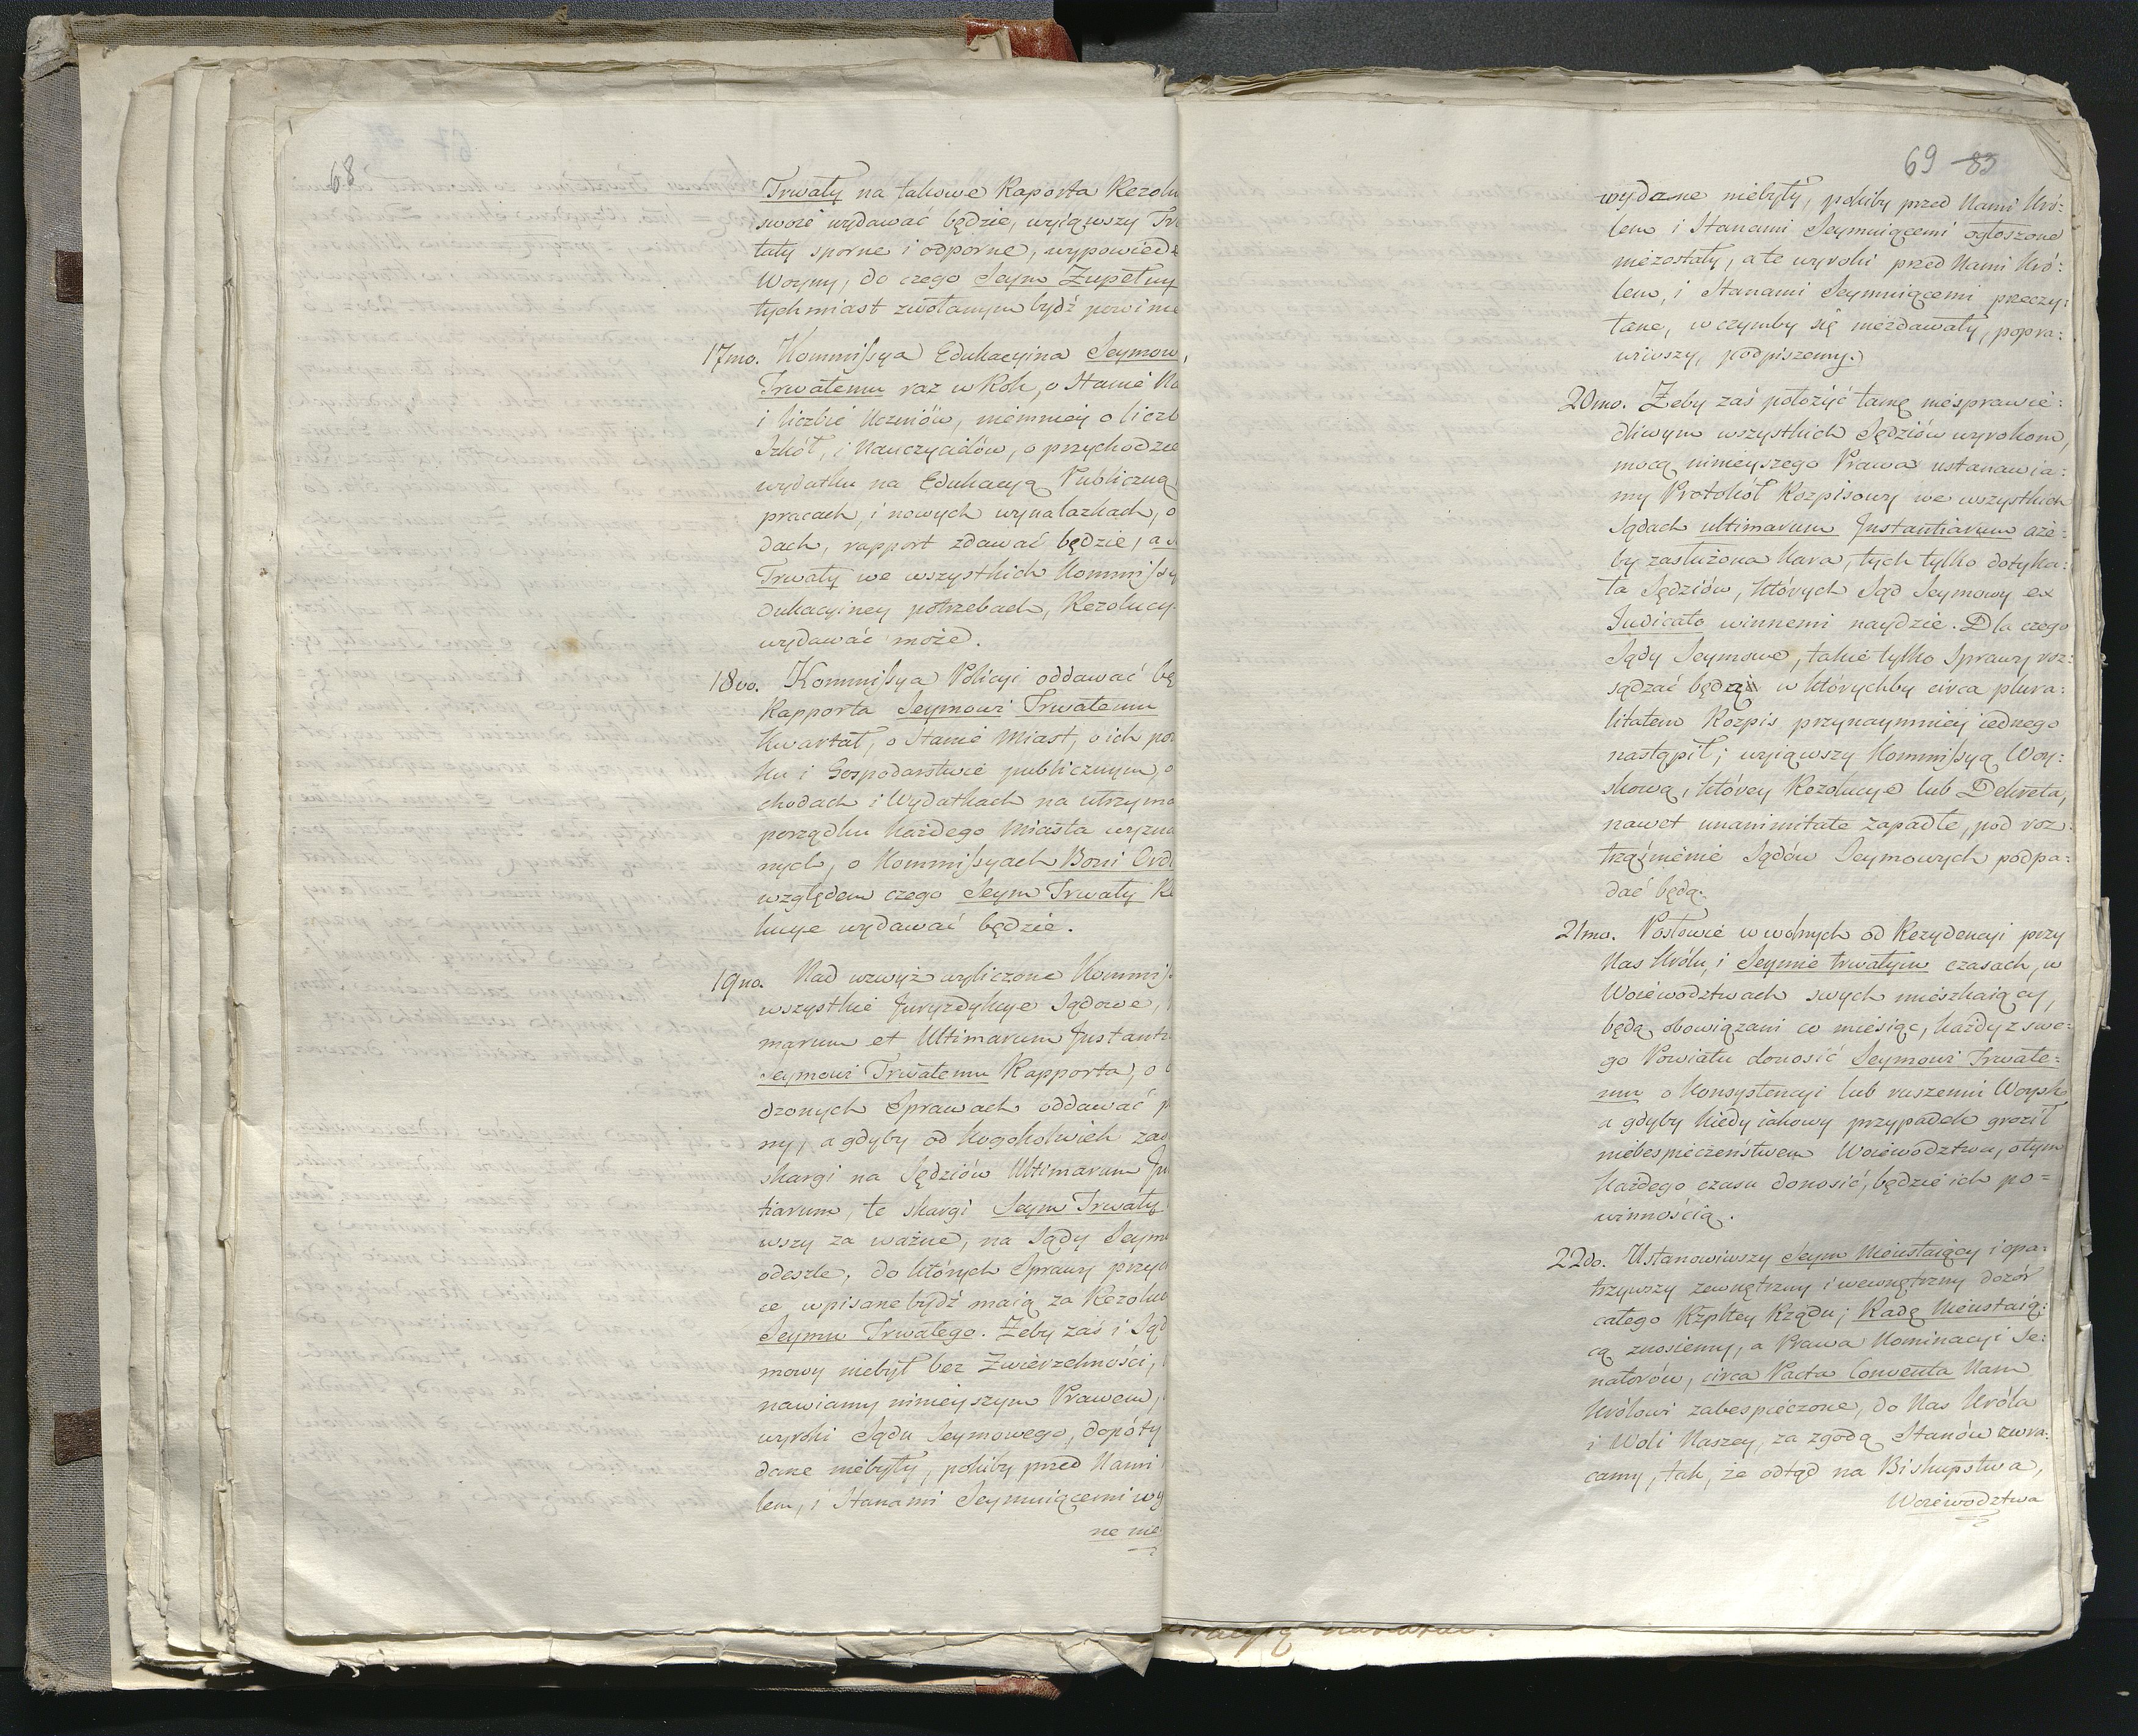 68
Trwały na takowe Raporta Rezolu
swoie wydawać będzie, wyiąwszy Tr
taty sporne i odporne, wypowiedz
Woyny, do czego Seym Zupełny
tychmiast zwołanym bydź powinie
17mo. Kommissya Edukacyina Seymow,
Trwałemu raz w Rok, o Stanie Na
i liczbie Uczniów, niemniey o liczb
Szkół, i Nauczycielów, o przychodzie
wydatku na Edukacyą Publiczną
pracach, i nowych wynalazkach, o
dach, rapport zdawać będzie, a s
Trwały we wszystkich Kommissy
dukacyiney potrzebach, Rezolucy
wydawać może.
18vo. Kommissya Policyi oddawać bę
Rapporta Seymowi Trwałemu
Kwartał, o Stanie Miast, o ich po
ku i Gospodarstwie publicznym, o
chodach i Wydatkach na utrzyma
porządku każdego Miasta wyzna
nych, o Kommissyach Boni Ord
względem czego Seym Trwały Re
lucye wydawać będzie.
19no. Nad wzwyż wyliczone Kommiss
wszystkie Juryzdykcye Sądowe,
marum et Ultimarum Instanti
Seymowi Trwałemu Rapporta, o
dzonych Sprawach oddawać p
ny, a gdyby od kogokolwiek zas
skargi na Sędziów Ultimarum In
tiarum, te skargi Seym Trwały
wszy za ważne, na Sądy Seym
odeszle, do których Sprawy przyc
ce wpisane bydź maią za Rezoluc
Seymu Trwałego. Żeby zaś i Sąd
mowy niebył bez Zwierzchności,
nawiamy ninieyszym Prawem,
wyroki Sądu Seymowego, dopóty
dane niebyły, pókiby przed Nami
lem, i Stanami Seymuiącemi wy
ne nie
69 83
wydane niebyły, pókiby przed Nami Kró:
lem i Stanami Seymuiącemi ogłoszone
niezostały, a te wyroki przed Nami Kró:
lem, i Stanami Seymuiącemi przeczy:
tane, w czymby się niezdawały, popra:
wiwszy, podpiszemy.
20mo. Żeby zaś położyć tamę niesprawie:
dliwym wszystkich Sędziów wyrokom,
mocą ninieyszego Prawa ustanawia:
my Protokół Rozpisowy we wszystkich
Sądach ultimarum Instantiarum aże:
by zasłużona kara, tych tylko dotyka:
ła Sędziów, których Sąd Seymowy ex
Judicato winnemi naydzie. Dla czego
Sądy Seymowe, takie tylko Sprawy roz:
sądzać będą w którychby circa plura:
litatem Rozpis przynaymniey iednego
nastąpił; wyiąwszy Kommissyą Woy:
skową, którey Rezolucye lub Dekreta,
nawet unanimitate zapadłe, pod roz:
trząśnienie Sądów Seymowych podpa:
dać będą.
21mo. Posłowie w wolnych od Rezydencyi przy
Nas Królu, i Seymie trwałym czasach, w
Woiewodztwach swych mieszkaiący,
będą obowiązani co miesiąc, każdy z swe:
go Powiatu donosić Seymowi Trwałe=
mu o Konsystencyi lub ruszeniu Woysk
a gdyby kiedy iakowy przypadek groził
niebespieczeństwem Woiewodztwu, o tym
każdego czasu donosić, będzie ich po=
winnością.
22do. Ustanowiwszy Seym Nieustaiący i opa:
trzywszy zewnętrzny i wewnętrzny dozór
całego Rzpltey Rządu; Radę Nieustaią:
cą znosiemy, a Prawa Nominacyi Se:
natorów, circa Pacta Conventa Nam
Królowi zabespieczone, do Nas Króla
i Woli Naszey, za zgodą Stanów zwra:
camy, tak, że odtąd na Biskupstwa,
Woiewodztwa